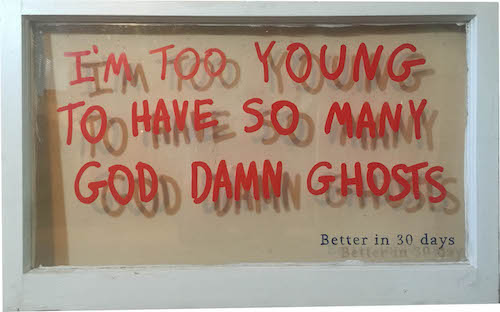 I'M TOO YOUNG
TO HAVE SO MANY
GOD DAMN GHOSTS
Better in 30 days